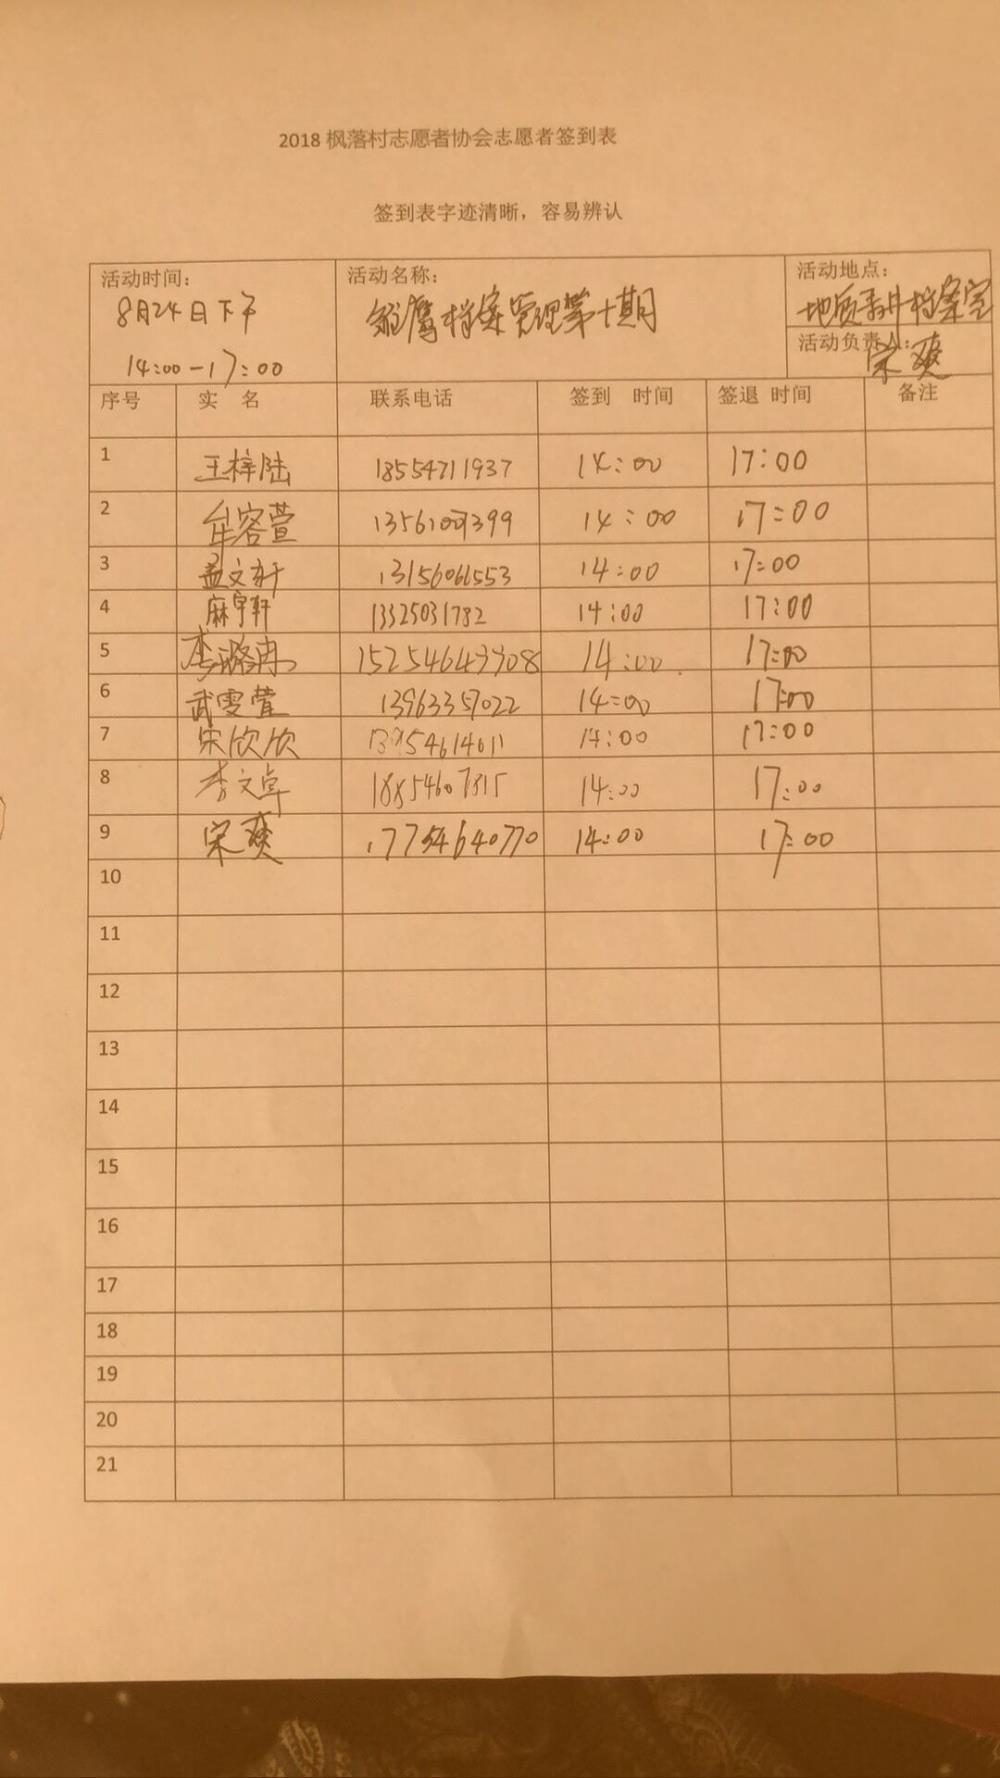 2018 枫落村志愿者协会志愿者签到表
签到表字迹清晰，容易辨认
活动时间： 活动名称： 活动地点：
8月24日下午 雏鹰档案管理第十期 地质 档案室
14:00-17:00 活动负责人：宋爽
序号 实 名 联系电话 签到 时间 签退 时间 备注
1 王梓陆 18554711937 14:00 17:00
2 牟容萱 14:00 17:00
3 孟文轩 13156061553 14:00 17:00
4 麻宇轩 13325031782 14:00 17:00
5 李璐冉 14:00 17:00
6 武雯萱 13963357022 14:00 17:00
7 宋欣欣 13954614011 14:00 17:00
8 李文卓 18854607815 14:00 17:00
9 宋爽 17754640770 14:00 17:00
10
11
12
13
14
15
16
17
18
19
20
21